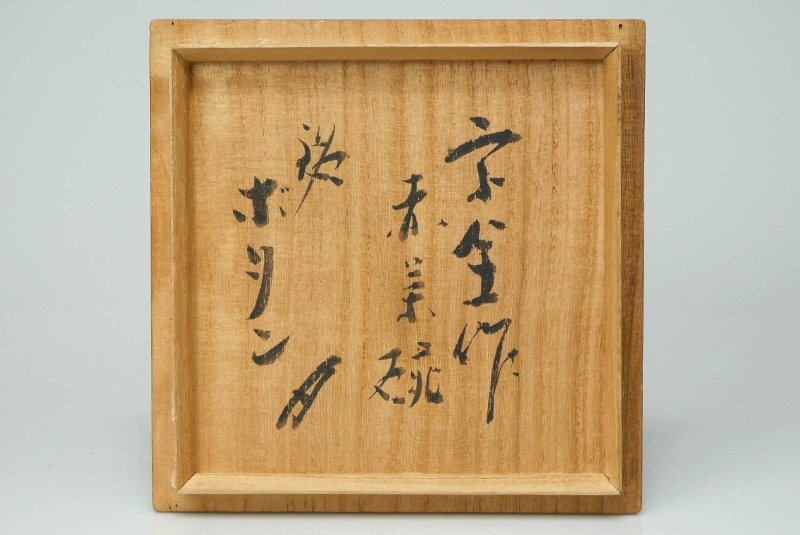 宗全作
赤茶碗
銘
ボタン